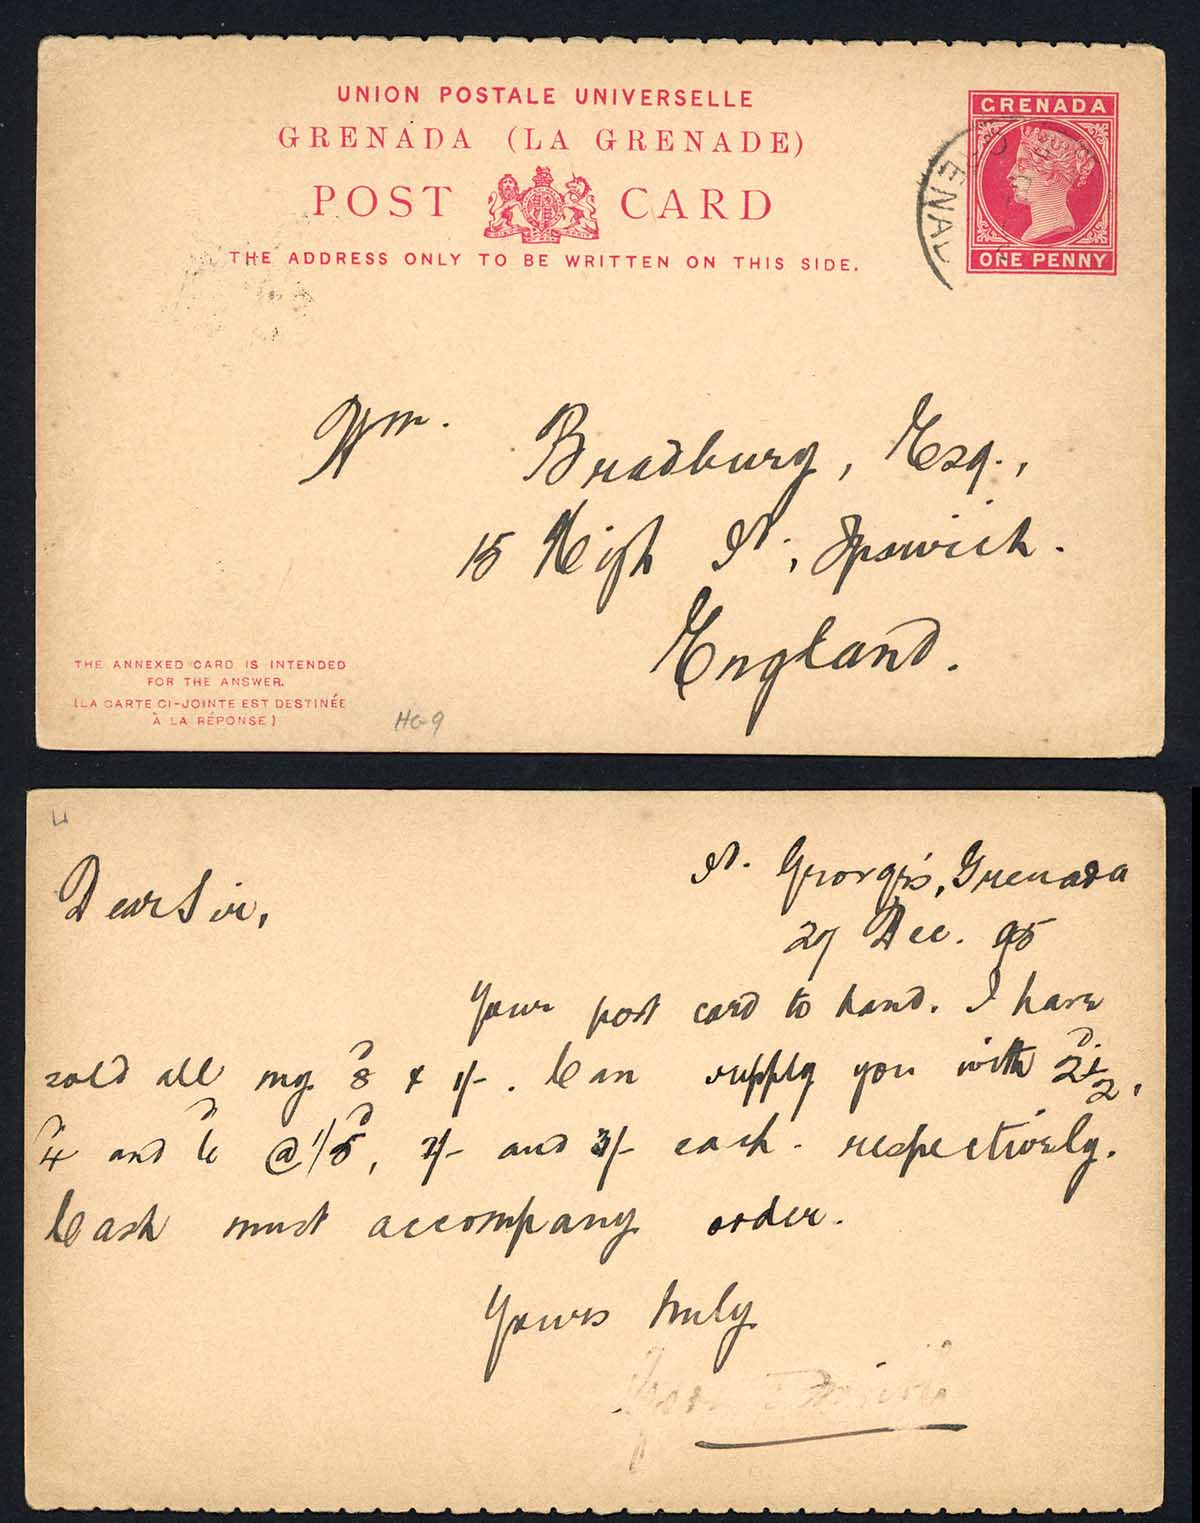 UNION POSTALE UNIVERSELLE
GRENADA (LA GRENADE)
POST CARD
THE ADDRESS ONLY TO BE WRITTEN ON THIS SIDE.
GRENADA
ONE PENNY
ENAD
Wm. Bradbury, Esq.,
15 High St., Ipswich.
England.
THE ANNEXED CARD IS INTENDED
FOR THE ANSWER.
(LA CARTE CI-JOINTE EST DESTINÉE
À LA RÉPONSE)
HG-9
St. George's, Grenada
27 Dec. 95
Dear Sir,
Your post card to hand. I have
sold all my 8d & 1/-. Can supply you with 2½d,
4d and 6d @ 1/8d, 2/- and 3/- each respectively.
Cash must accompany order.
Yours truly